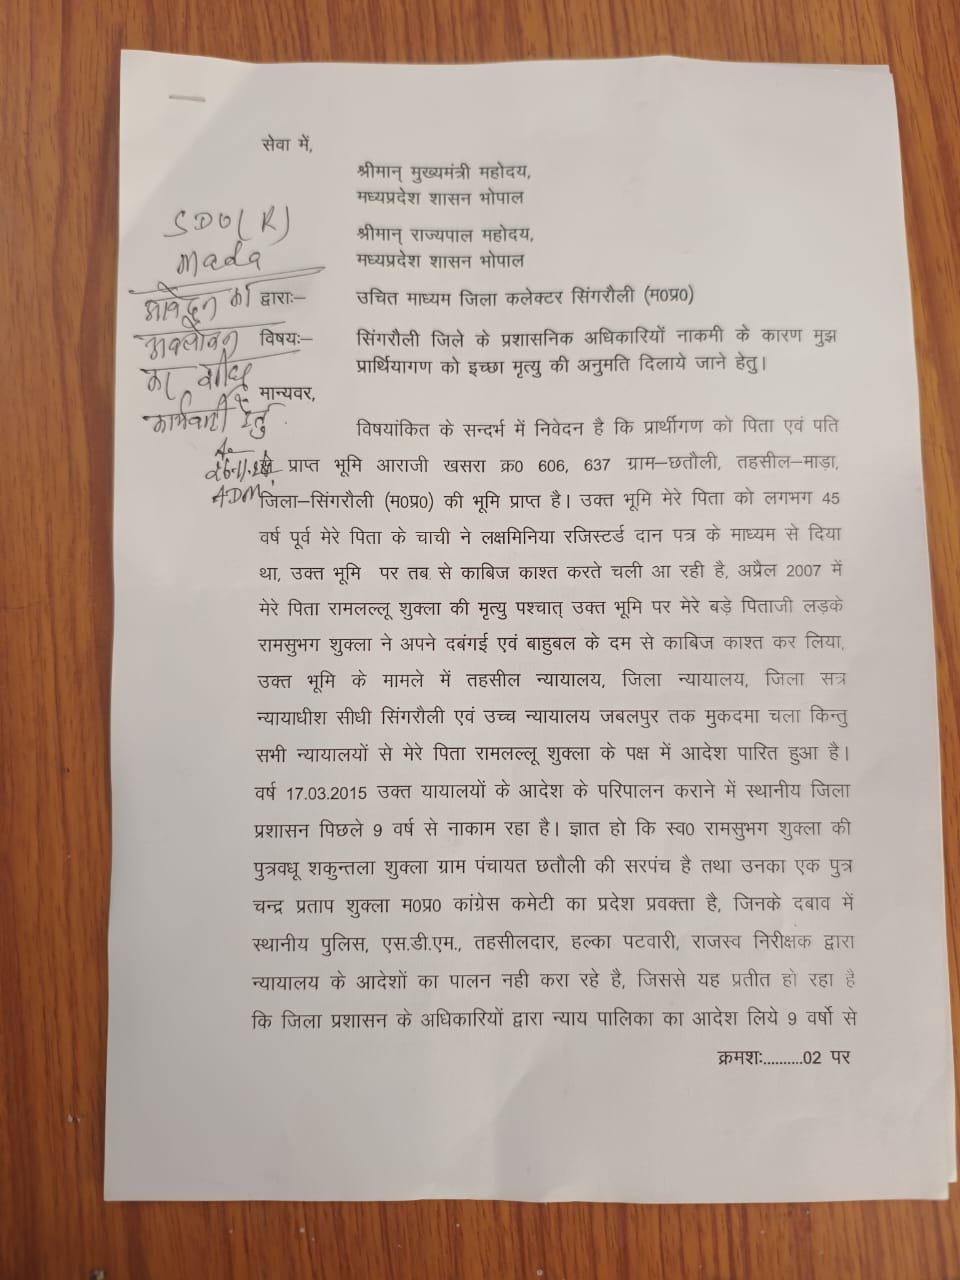 सेवा में,
श्रीमान् मुख्यमंत्री महोदय,
मध्यप्रदेश शासन भोपाल
श्रीमान् राज्यपाल महोदय,
मध्यप्रदेश शासन भोपाल
SDO(R)
Mada
आवेदन का
अवलोकन
का शीघ्र
कार्यवाही हेतु
ADM
द्वाराः– उचित माध्यम जिला कलेक्टर सिंगरौली (म0प्र0)
विषयः– सिंगरौली जिले के प्रशासनिक अधिकारियों नाकमी के कारण मुझ
प्रार्थियागण को इच्छा मृत्यु की अनुमति दिलाये जाने हेतु।
मान्यवर,
विषयांकित के सन्दर्भ में निवेदन है कि प्रार्थीगण को पिता एवं पति
से प्राप्त भूमि आराजी खसरा क्र0 606, 637 ग्राम–छतौली, तहसील–माड़ा,
जिला–सिंगरौली (म0प्र0) की भूमि प्राप्त है। उक्त भूमि मेरे पिता को लगभग 45
वर्ष पूर्व मेरे पिता के चाची ने लक्षमिनिया रजिस्टर्ड दान पत्र के माध्यम से दिया
था, उक्त भूमि पर तब से काबिज काश्त करते चली आ रही है, अप्रैल 2007 में
मेरे पिता रामलल्लू शुक्ला की मृत्यु पश्चात् उक्त भूमि पर मेरे बड़े पिताजी लड़के
रामसुभग शुक्ला ने अपने दबंगई एवं बाहुबल के दम से काबिज काश्त कर लिया,
उक्त भूमि के मामले में तहसील न्यायालय, जिला न्यायालय, जिला सत्र
न्यायाधीश सीधी सिंगरौली एवं उच्च न्यायालय जबलपुर तक मुकदमा चला किन्तु
सभी न्यायालयों से मेरे पिता रामलल्लू शुक्ला के पक्ष में आदेश पारित हुआ है।
वर्ष 17.03.2015 उक्त यायालयों के आदेश के परिपालन कराने में स्थानीय जिला
प्रशासन पिछले 9 वर्ष से नाकाम रहा है। ज्ञात हो कि स्व0 रामसुभग शुक्ला की
पुत्रवधू शकुन्तला शुक्ला ग्राम पंचायत छतौली की सरपंच है तथा उनका एक पुत्र
चन्द्र प्रताप शुक्ला म0प्र0 कांग्रेस कमेटी का प्रदेश प्रवक्ता है, जिनके दबाव में
स्थानीय पुलिस, एस.डी.एम., तहसीलदार, हल्का पटवारी, राजस्व निरीक्षक द्वारा
न्यायालय के आदेशों का पालन नही करा रहे है, जिससे यह प्रतीत हो रहा है
कि जिला प्रशासन के अधिकारियों द्वारा न्याय पालिका का आदेश लिये 9 वर्षो से
क्रमशः..........02 पर